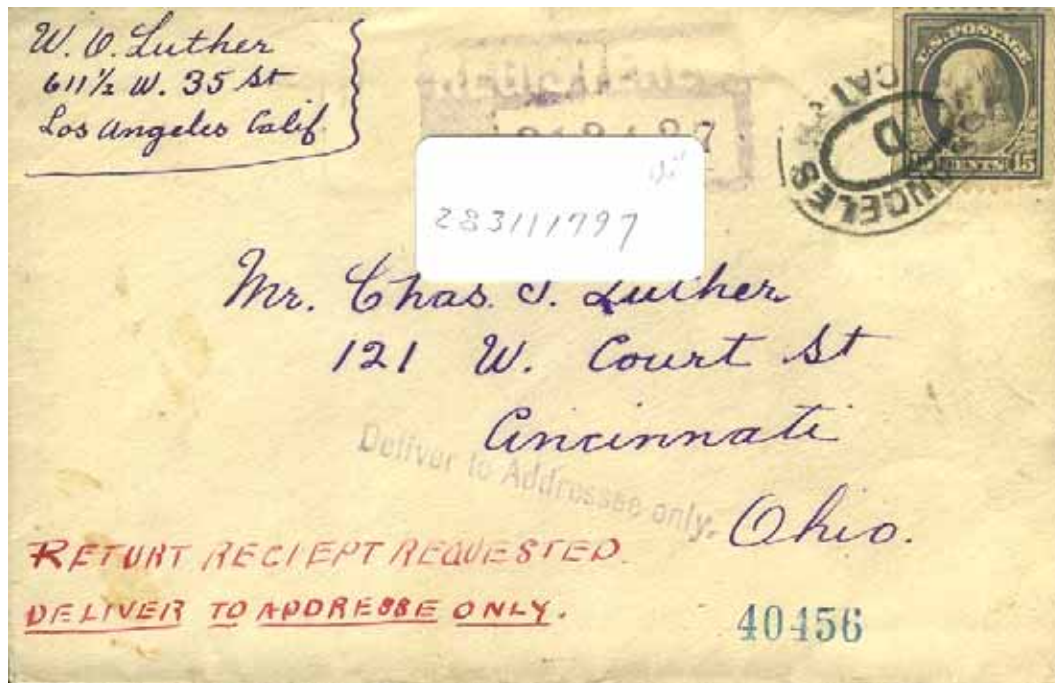 W. O. Luther
611½ W. 35 St
Los Angeles Calif
U.S. POSTAGE
CENTS 15
ANGELES
CAL
D
283111797
Mr. Chas. J. Luther
121 W. Court St
Cincinnati
Ohio.
Deliver to Addressee only.
RETURT RECIEPT REQUESTED.
DELIVER TO ADDRESSE ONLY.
40456